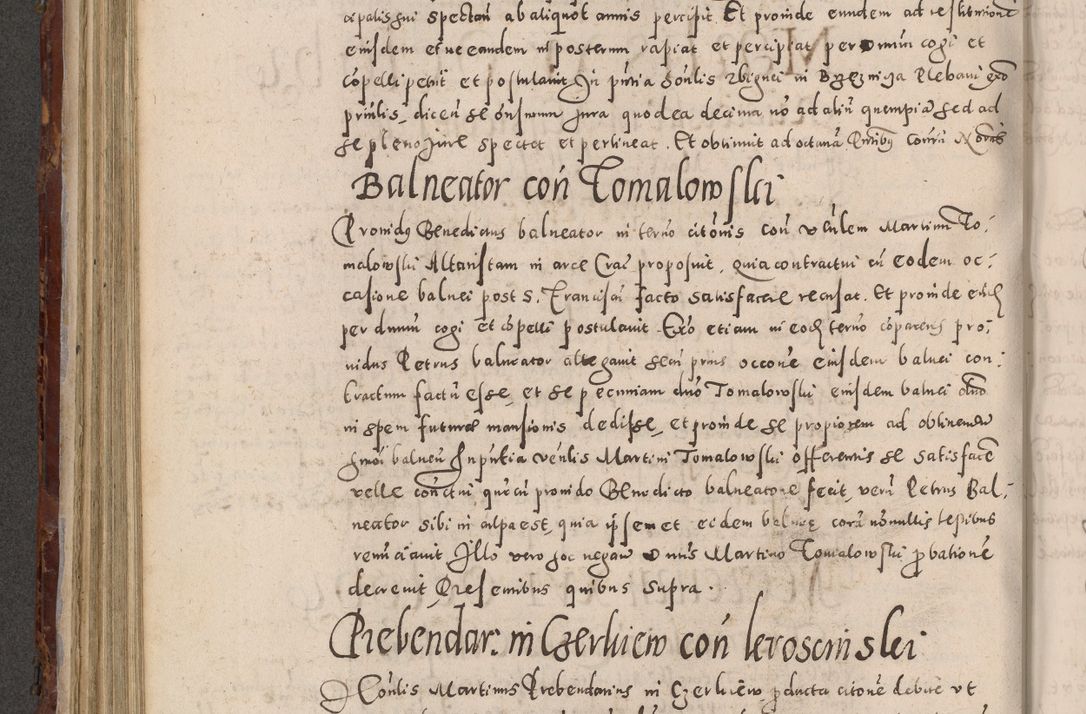 spectan ab aliquot annis percipit. Et proinde eundem ad restitutione
eiusdem et ne eandem in posterum rapiat et percipiat per D. cogi et
cōpelli petiit et postulavit. In pntia honlis Zbignei in Brzeznicza Plebani
printis, dicen se onsurum jura quod ea decima nō ad aliū quempiā sed ad
se pleno jure spectet et pertineat. Et obtinuit ad octanā
Balneator con Tomalowski
Providus Benedictus balneator in terno citōnis con venlem Martinum To-
malowski Altaristam in arce Crac proposuit, quia contractui cū eodem oc-
casione balnei post S. Francisci facto satisfacere recusat. Et proinde
per dnum cogi et cōpelli postulavit. Exo etiam in eodē terno cōparens pro-
vidus Petrus balneator allegavit secū prius occone eiusdem balnei con-
tractum factū esse, et se pecuniam dno Tomalowski eiusdem balnei dno
in spem futurae mansionis dedisse, et proinde se propiorem ad obtinendū
balneū In pntia venlis Martini Tomalowski offerentis se satisfacē
velle conctui quē cū provido Benedicto balneatore fecit, verū Petrus Bal-
neator sibi in culpa est, quia ipsemet eidem balneę corā nonnullis testibus
renūciavit Illo vero hoc negan D. Martino Tomalowski pbationē
decrevit, Presentibus quibus supra.
Prebendar: in Czerkiew con leroscinski
Honlis Martinus Prebendarius in Czerkiew pducta citone debite ut